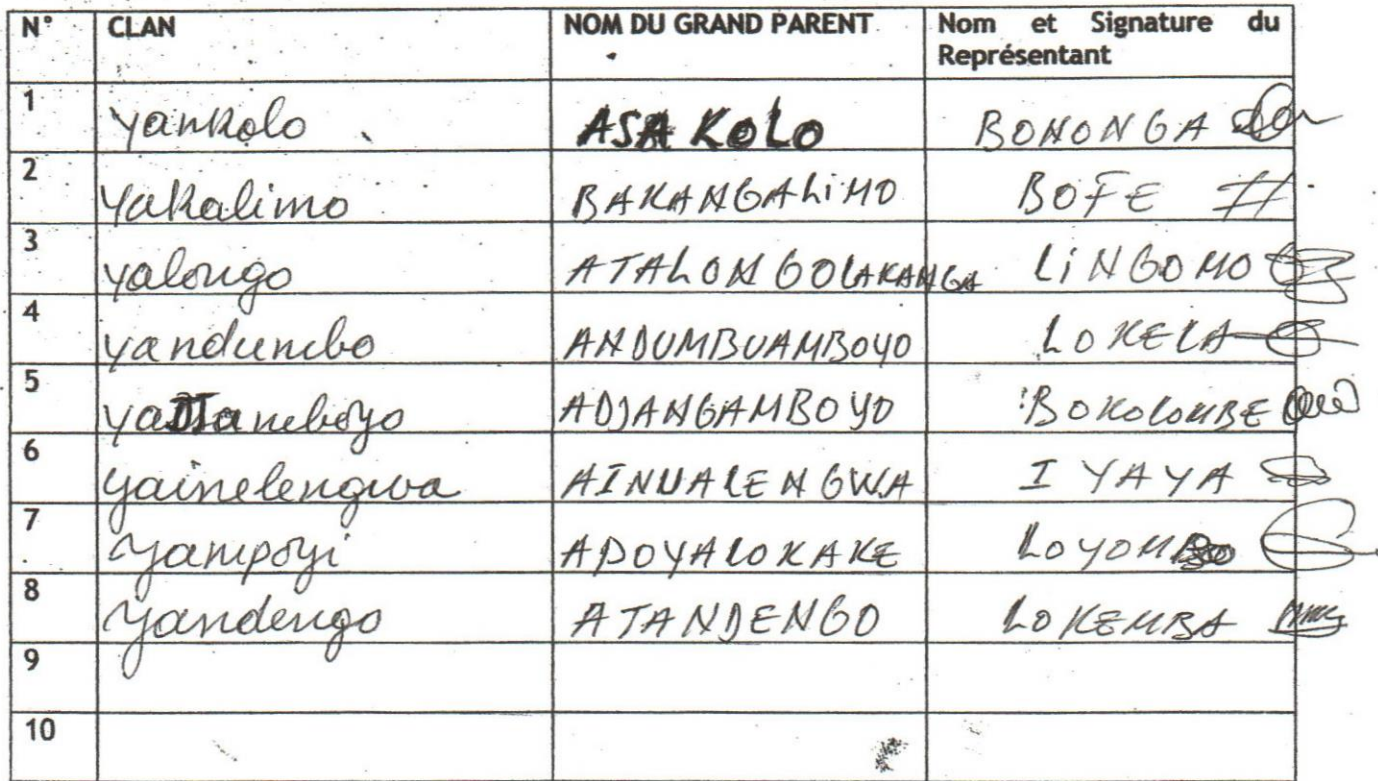 N° CLAN NOM DU GRAND PARENT Nom et Signature du
Représentant
1 yankolo ASA KOLO BONONGA
2 Yakalimo BAKANGALiMO BOFE
3 yalongo ATALONGOLAKANGA LiNGOMO
4 yandumbo ANDUMBUAMBOYO LOKELA
5 yaDJamboyo ADJANGAMBOYO BOKOLOMBE
6 yainelengwa AINUALENGWA IYAYA
7 yampoyi APOYALOKAKE LOYOMBO
8 yandengo ATANDENGO LOKEMBA
9
10